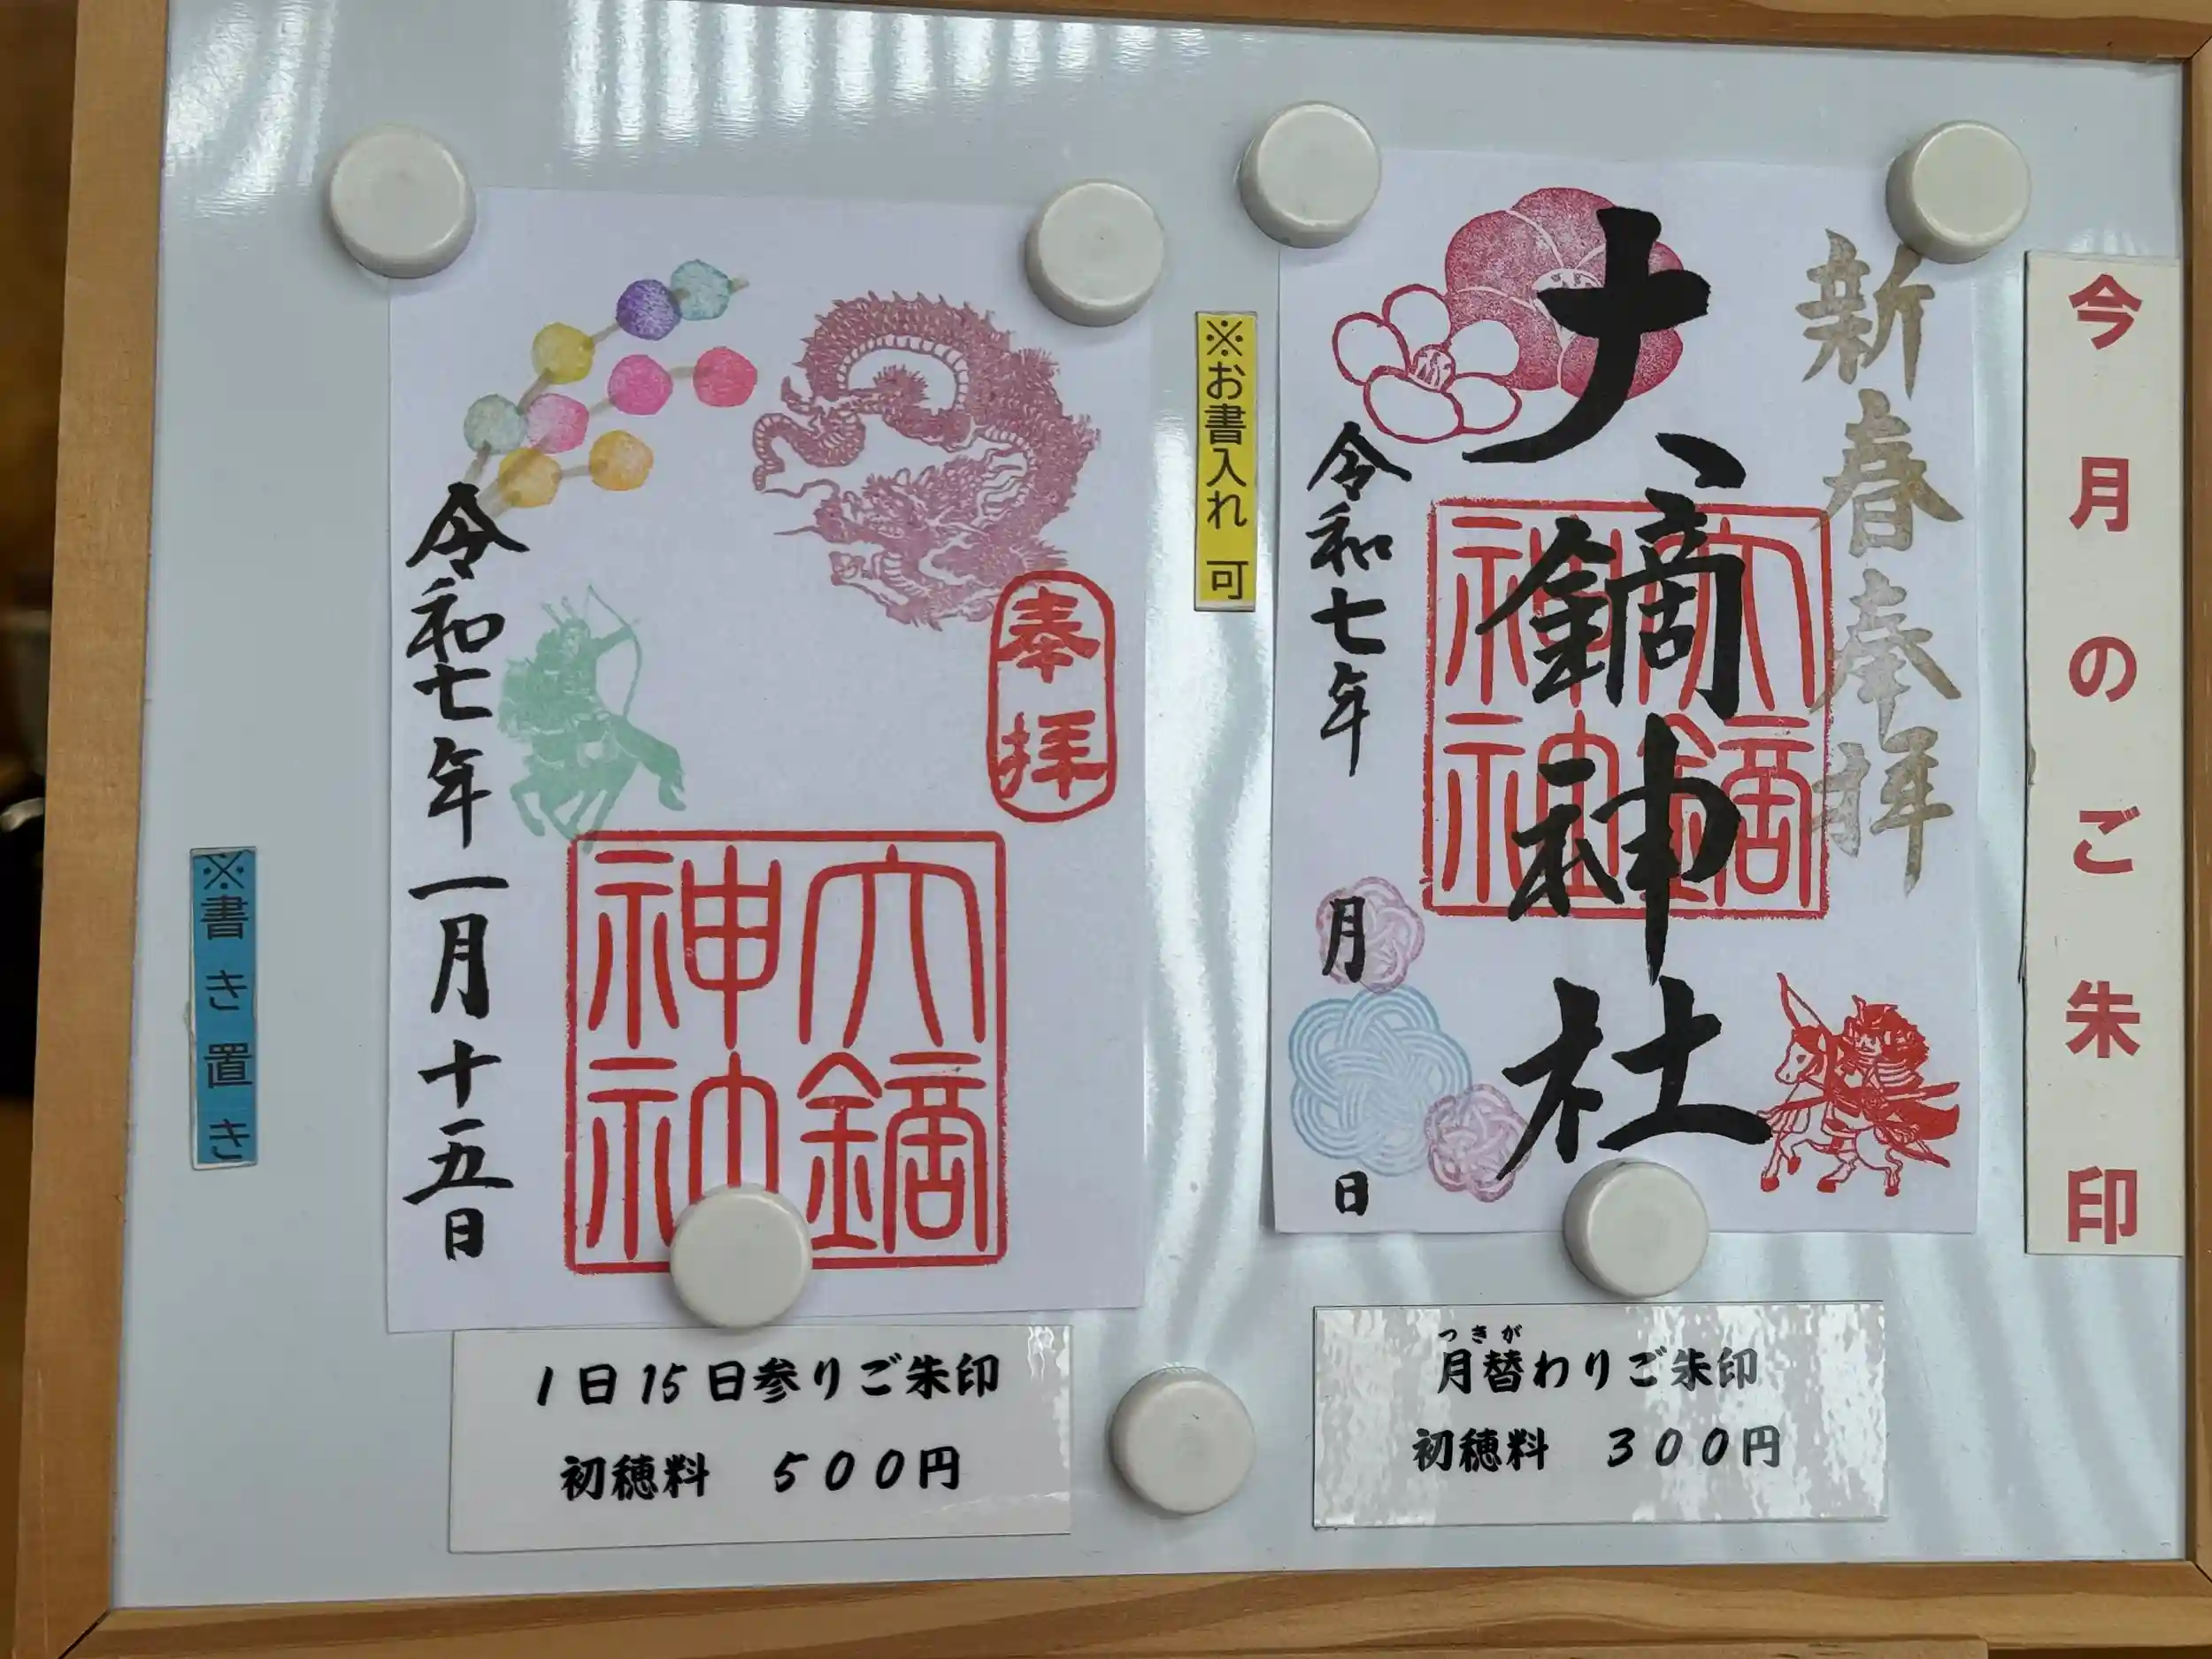 今月のご朱印
新春奉拝
大鏑神社
大鏑
神社
令和七年 月 日
月替わりご朱印
つきが
初穂料 300円
※お書入れ 可
奉拝
大鏑
神社
令和七年一月十五日
1日15日参りご朱印
初穂料 500円
※書き置き